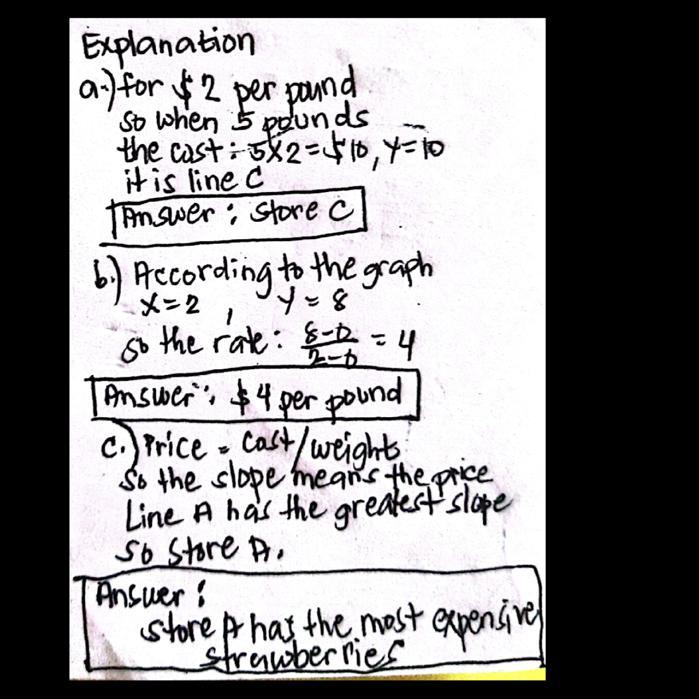 Explanation
a.) for $2 per pound
so when 5 pounds
the cost: 5x2=$10, y=10
it is line C
Answer: Store C
b.) According to the graph
x=2, y=8
so the rate: 8-0/2-0 = 4
Answer: $4 per pound
c.) Price = cost/weights
So the slope means the price
Line A has the greatest slope
So Store A.
Answer:
store A has the most expensive
strawberries